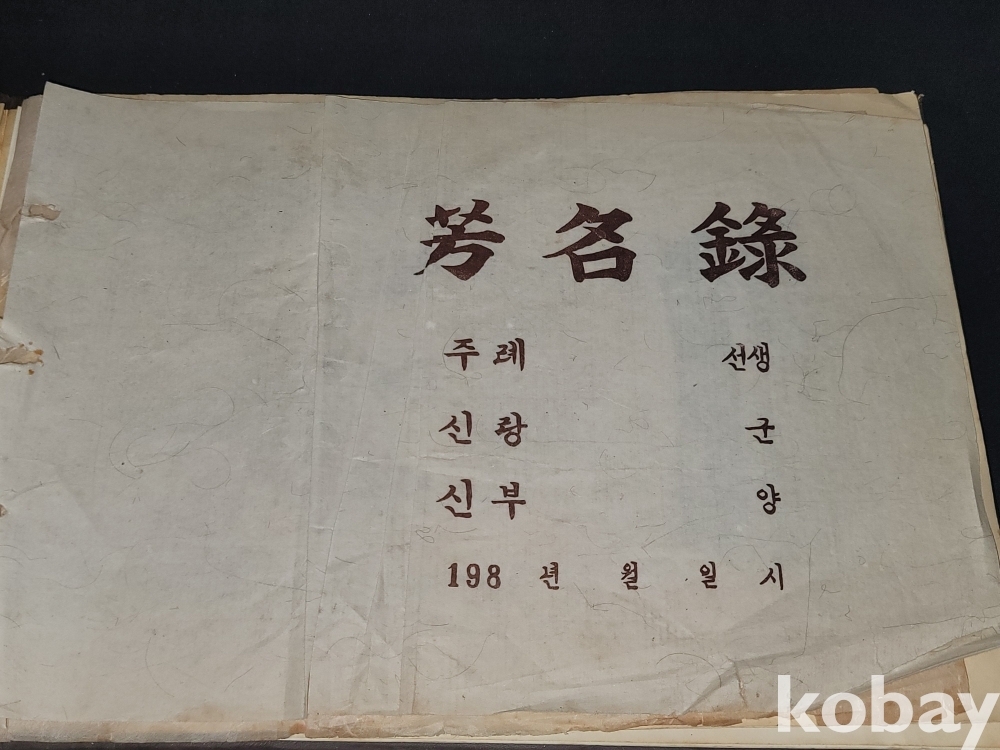 芳名錄
주례 선생
신랑 군
신부 양
198 년 월 일 시
kobay